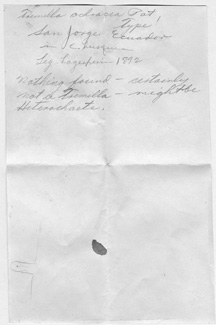 Tremella ochracea Pat!
Type
San Jorge Ecuador
Leg. Lagerheim 1892
Nothing found — certainly
not a Tremella — might be
Heterochaete.